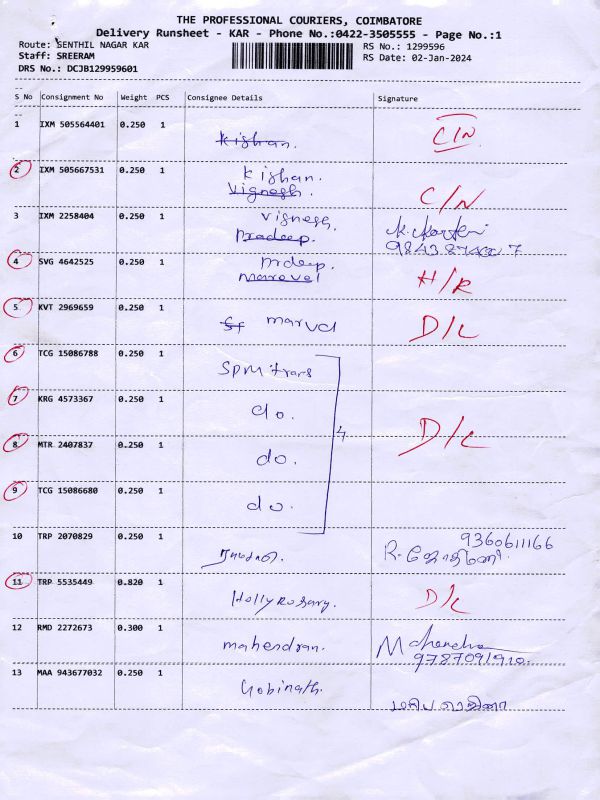 THE PROFESSIONAL COURIERS, COIMBATORE
Delivery Runsheet - KAR - Phone No.:0422-3505555 - Page No.:1
Route: SENTHIL NAGAR KAR RS No.: 1299596
Staff: SREERAM RS Date: 02-Jan-2024
DRS No.: DCJB129959601
S No Consignment No Weight PCS Consignee Details Signature
1 IXM 505564401 0.250 1 Kishan. C/N
2 IXM 505667531 0.250 1 Kishan.
Vignesh. C/N
3 IXM 2258404 0.250 1 Vignesh.
Pradeep. 
4 SVG 4642525 0.250 1 Prdeep.
Maravel H/R
5 KVT 2969659 0.250 1 Sf marvel D/L
6 TCG 15086788 0.250 1 Spm trars
7 KRG 4573367 0.250 1 do.
8 MTR 2407837 0.250 1 do. 4 D/L
9 TCG 15086680 0.250 1 do.
10 TRP 2070829 0.250 1 9360611166
R.
11 TRP 5535449 0.820 1 Hollyrosary. D/L
12 RMD 2272673 0.300 1 mahendran. Mahendra
9787091920.
13 MAA 943677032 0.250 1 Gobinath.